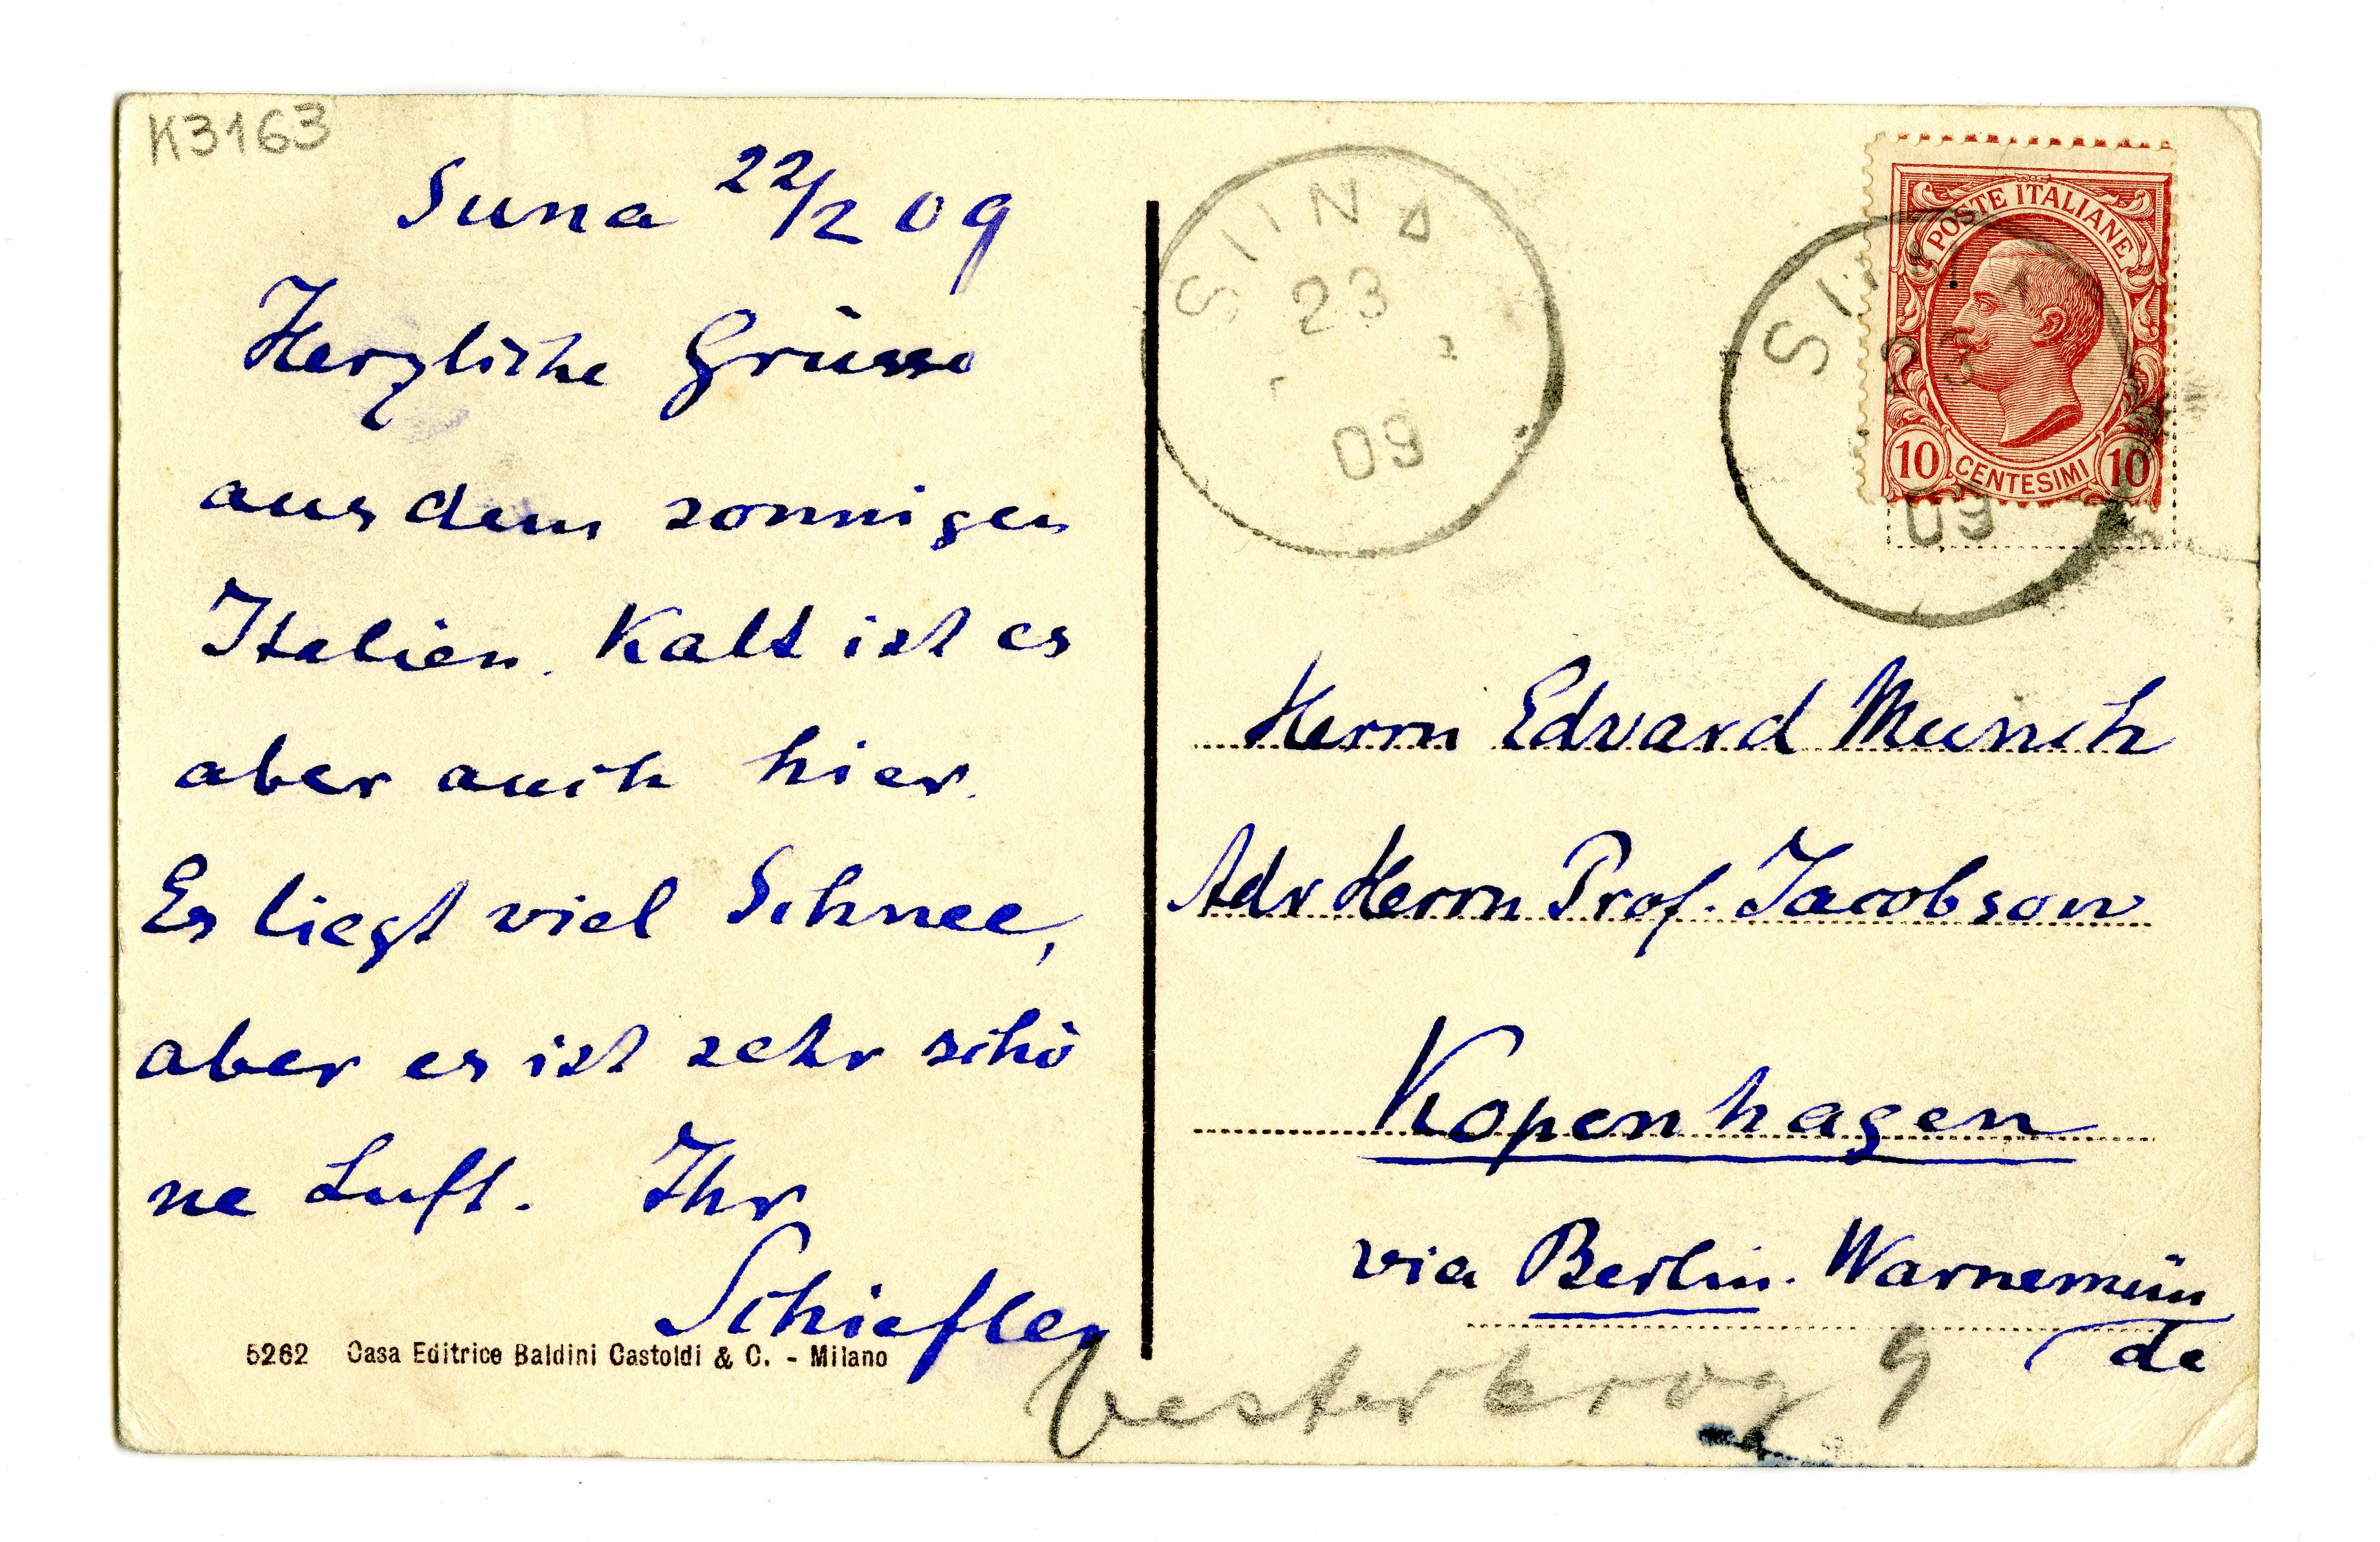 K3163
Suna 22/2 09
Herzliche Grüsse
aus dem sonnigen
Italien. Kalt ist es
aber auch hier.
Es liegt viel Schnee,
aber es ist sehr schö
ne Luft. Ihr
Schiefler
5262 Casa Editrice Baldini Castoldi & C. - Milano
SUNA
23
2
09
POSTE ITALIANE
10 CENTESIMI 10
23
09
Herrn Edvard Munch
Adr Herrn Prof. Jacobson
Kopenhagen
via Berlin. Warnemün
de
Vesterbrog 9